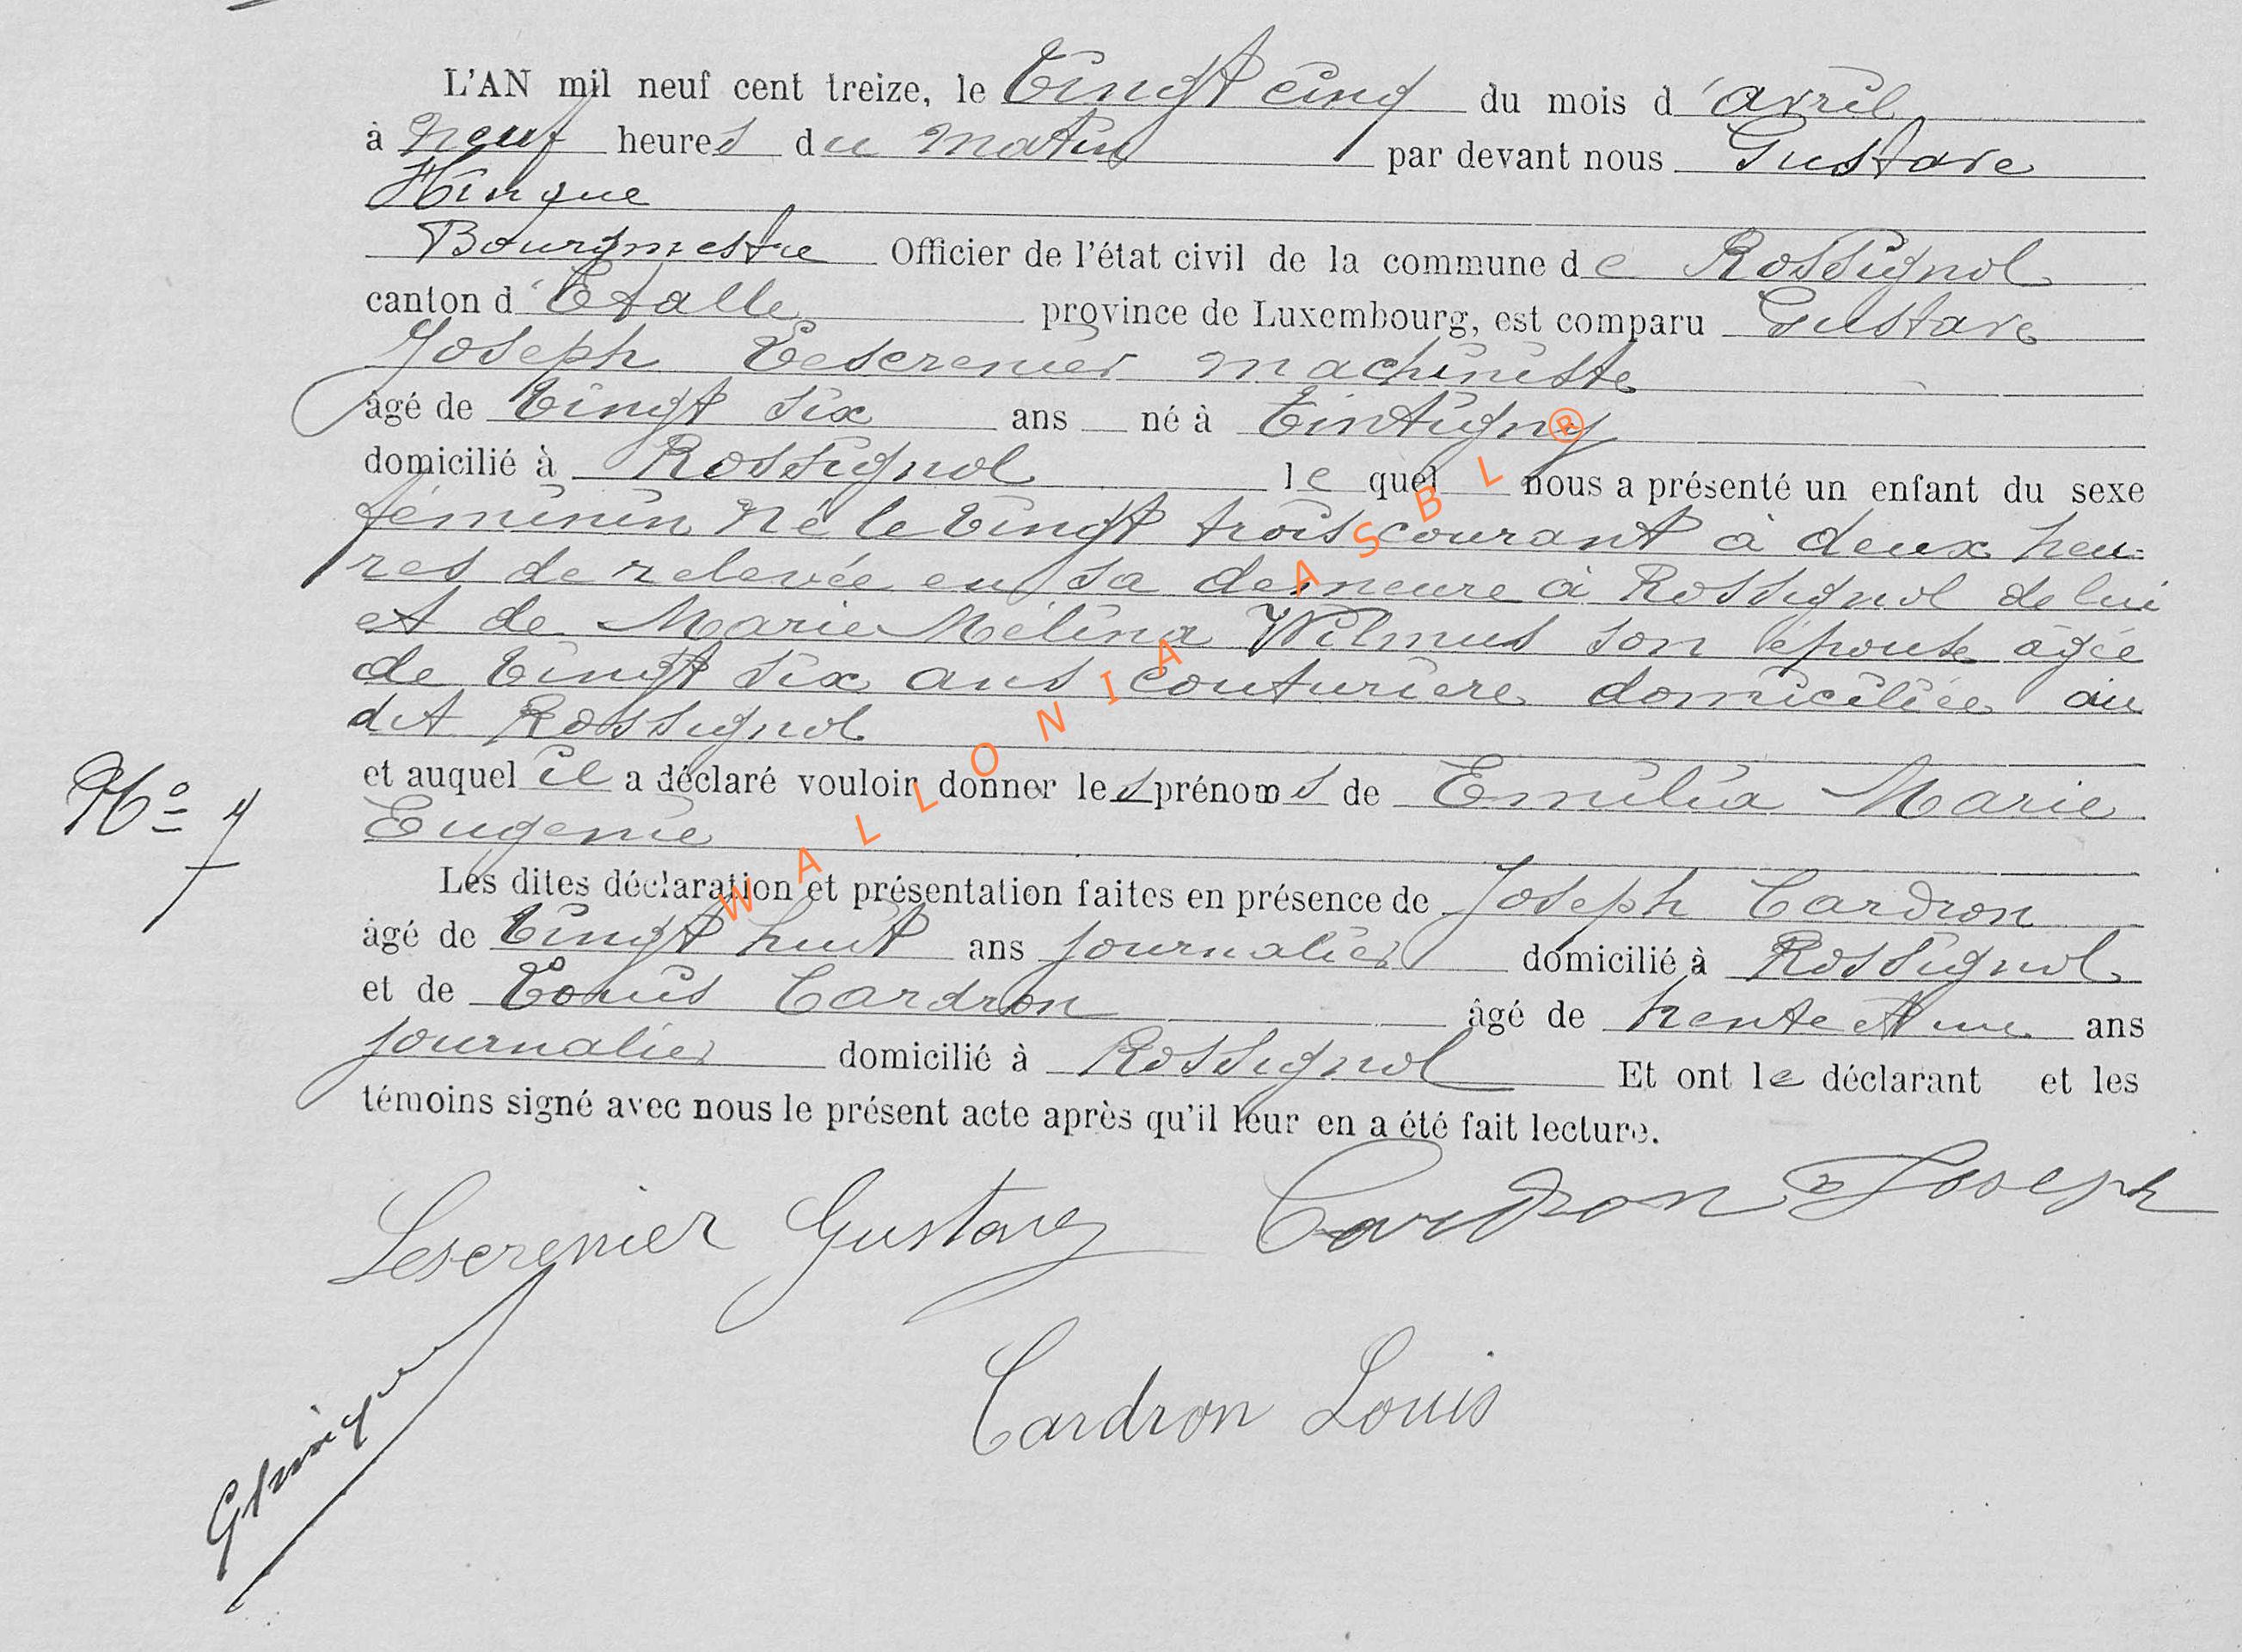 L'AN mil neuf cent treize, le Vingt cinq du mois d'avril
à Neuf heures du matin par devant nous Gustave
Hinque
Bourgmestre Officier de l'état civil de la commune de Rossignol
canton d'Etalle province de Luxembourg, est comparu Gustave
Joseph Lescrenier machiniste
âgé de Vingt six ans né à Tintigny
domicilié à Rossignol lequel nous a présenté un enfant du sexe
féminin Né le Vingt trois courant à deux heu-
res de relevée en sa demeure à Rossignol de lui
et de Marie Mélina Wilmus son épouse agée
de Vingt six ans couturière domiciliée au
dit Rossignol
et auquel il a déclaré vouloir donner les prénoms de Emilia Marie
Eugenie
No 7
Les dites déclaration et présentation faites en présence de Joseph Cardron
âgé de Vingt huit ans journalier domicilié à Rossignol
et de Louis Cardron âgé de trente et un ans
journalier domicilié à Rossignol Et ont le déclarant et les
témoins signé avec nous le présent acte après qu'il leur en a été fait lecture.
Lescrenier Gustave Cardron Joseph
Cardron Louis
GHinque
WALLONIA ASBL ®